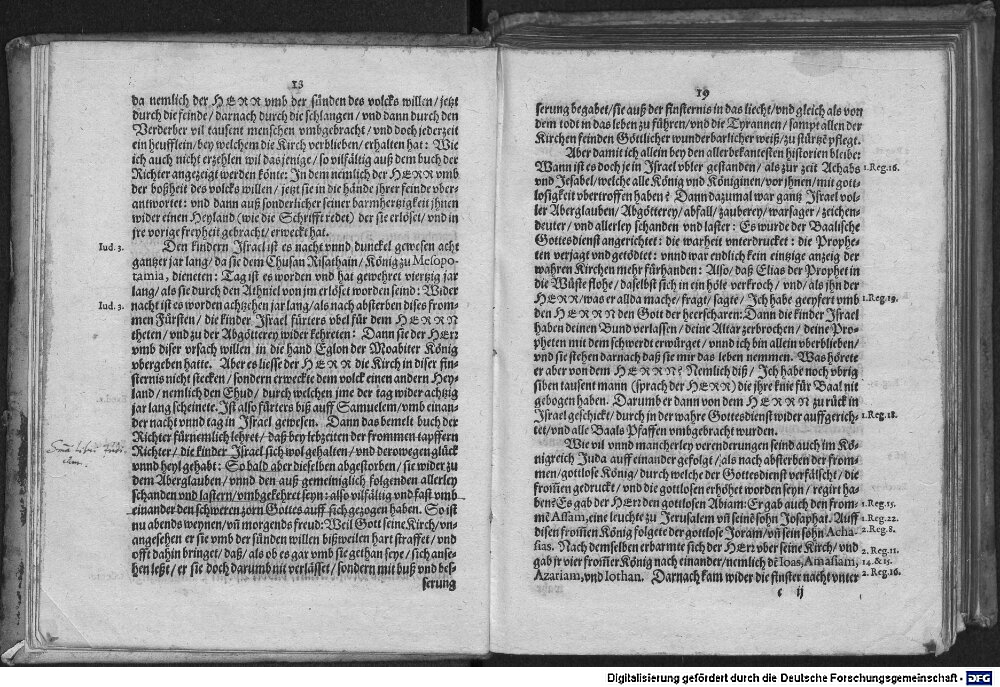 13
da nemlich der HERR vmb der sünden des volcks willen / jetzt
durch die feinde / darnach durch die schlangen / vnd dann durch den
Verderber vil tausent menschen vmbgebracht / vnd doch jederzeit
ein heufflein / bey welchem die Kirch verblieben / erhalten hat: Wie
ich auch nicht erzehlen wil dasjenige / so vilfältig auß dem buch der
Richter angezeigt werden könte: In dem nemlich der HERR vmb
der boßheit des volcks willen / jetzt sie in die hände jhrer feinde vber-
antwortet: vnd dann auß sonderlicher seiner barmhertzigkeit jhnen
wider einen Heyland (wie die Schrifft redet) der sie erlöset / vnd in
jre vorige freyheit gebracht / erweckt hat.
Iud. 3. Den kindern Israel ist es nacht vnnd dunckel gewesen acht
gantzer jar lang / da sie dem Chusan Risathain / König zu Mesopo-
tamia, dieneten: Tag ist es worden vnd hat gewehret viertzig jar
lang / als sie durch den Athniel von jm erlöset worden seind: Wider
Iud. 3. nacht ist es worden achtzehen jar lang / als nach absterben dises from-
men Fürsten / die kinder Israel fürters vbel für dem HERRN
theten / vnd zu der Abgötterey wider kehreten: Dann sie der HErr
vmb diser vrsach willen in die hand Eglon der Moabiter König
vbergeben hatte. Aber es liesse der HERR die Kirch in diser fin-
sternis nicht stecken / sondern erweckte dem volck einen andern Hey-
land / nemlich den Ehud / durch welchen jme der tag wider achtzig
jar lang scheinete. Ist also fürters biß auff Samuelem / vmb einan-
der nacht vnnd tag in Israel gewesen. Dann das bemelt buch der
Richter fürnemlich lehret / daß bey lebzeiten der frommen tapffern
Richter / die kinder Israel sich wol gehalten / vnd derowegen glück
vnnd heyl gehabt: So bald aber dieselben abgestorben / sie wider zu
dem Aberglauben / vnnd den auß gemeiniglich folgenden allerley
schanden vnd lastern / vmbgekehret seyn: also vilfältig vnd fast vmb
einander den schweren zorn Gottes auff sich gezogen haben. So ist
nu abends weynen / vñ morgends freud: Weil Gott seine Kirch / vn-
angesehen er sie vmb der sünden willen bißweilen hart straffet / vnd
offt dahin bringet / daß / als ob es gar vmb sie gethan seye / sich anse-
hen leßt / er sie doch darumb nit verlässet / sondern mit buß vnd bes-
serung
19
serung begabet / sie auß der finsternis in das liecht / vnd gleich als von
dem todt in das leben zu führen / vnd die Tyrannen / sampt allen der
Kirchen feinden Göttlicher wunderbarlicher weiß / zu stürtzē pflegt.
Aber damit ich allein bey den allerbekantesten historien bleibe:
Wann ist es doch je in Israel vbler gestanden / als zur zeit Achabs 1. Reg. 16.
vnd Jesabel / welche alle König vnd Königinen / vor jhnen / mit gott-
losigkeit vbertroffen haben? Dann dazumal war gantz Israel vol-
ler Aberglauben / Abgötterey / abfall / zauberey / warsager / zeichen-
deuter / vnd allerley schanden vnd laster: Es wurde der Baalische
Gottesdienst angerichtet: die warheit vnterdrucket: die Prophe-
ten verjagt vnd getödtet: vnnd war endlich kein eintzige anzeig der
wahren Kirchen mehr fürhanden: Also / daß Elias der Prophet in
die Wüste flohe / daselbst sich in ein höle verkroch / vnd / als jhn der
HERR / was er allda mache / fragt / sagte / Ich habe geeyfert vmb 1. Reg. 19.
den HERRN den Gott der heerscharen: Dann die kinder Israel
haben deinen Bund verlassen / deine Altar zerbrochen / deine Pro-
pheten mit dem schwerdt erwürget / vnnd ich bin allein vberblieben /
vnd sie stehen darnach daß sie mir das leben nemmen. Was hörete
er aber von dem HERRN? Nemlich diß / Ich habe noch vbrig
siben tausent mann (sprach der HERR) die jhre knie für Baal nit
gebogen haben. Darumb er dann von dem HERRN zu rück in
Israel geschickt / durch in der wahre Gottesdienst wider auffgerich- 1. Reg. 18.
tet / vnd alle Baals Pfaffen vmbgebracht wurden.
Wie vil vnnd mancherley verenderungen seind auch im Kö-
nigreich Juda auff einander gefolgt / als nach absterben der from-
men / gottlose König / durch welche der Gottesdienst verfälscht / die
frommen gedruckt / vnd die gottlosen erhöhet worden seyn / regirt ha-
ben? Es gab der HErr den gottlosen Abiam: Er gab auch den from- 1. Reg. 15.
mē Assam, eine leuchte zu Jerusalem vñ seinē sohn Josaphat. Auff 1. Reg. 22.
disen frommen König folgete der gottlose Joram / vñ sein sohn Acha- 2. Reg. 8.
sias. Nach demselben erbarmte sich der HErr vber seine Kirch / vnd 2. Reg. 11.
gab jr vier frommer König nach einander / nemlich dē Ioas, Amasiam, 14. & 15.
Azariam, vnd Iothan. Darnach kam wider die finster nacht vnter 2. Reg. 16.
c ij
Digitalisierung gefördert durch die Deutsche Forschungsgemeinschaft - DFG